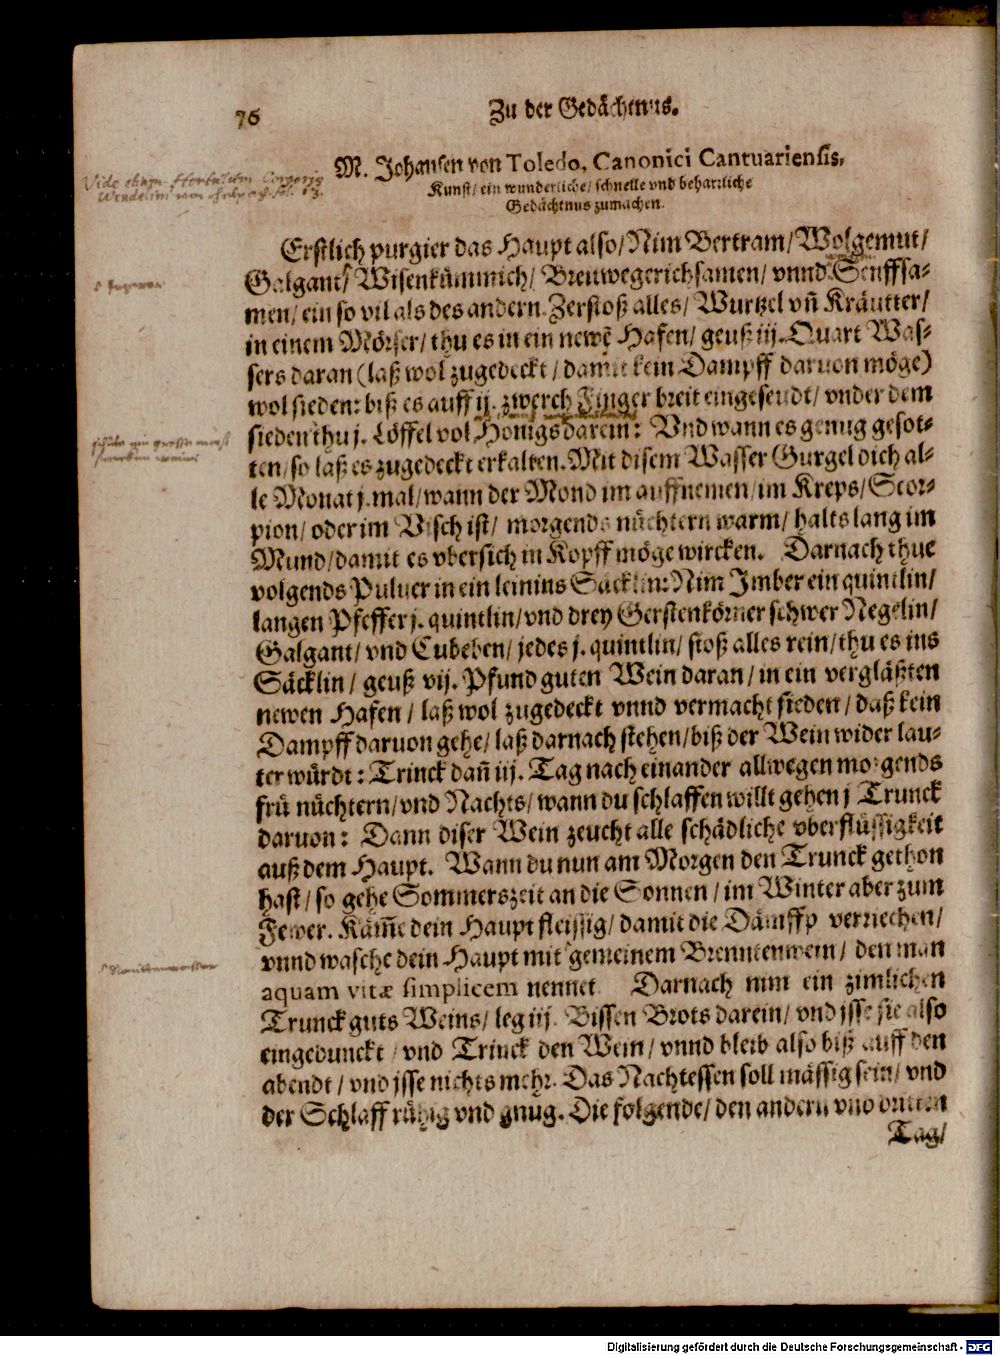 76
Zu der Gedächtnus.
M. Johansen von Toledo, Canonici Cantuariensis,
Kunst/ ein wunderliche/ schnelle vnd beharrliche
Gedächtnus zumachen.
Vide etiam
Erstlich purgier das Haupt also/ Nim Bertram/ Wolgemut/
Galgant/ Wisenkümmich/ Breitwegerichsamen/ vnnd Senffsa-
men/ ein so vil als des andern. Zerstoß alles/ Wurtzel vñ Kräutter/
in einem Mörser/ thu es in ein newẽ Hafen/ geuß iij. Quart Was-
sers daran (laß wol zugedeckt/ damit kein Dampff daruon möge)
wol sieden: biß es auff ij. zwerch Finger breit eingeseudt/ vnder dem
sieden thu j. Löffel vol Honigs darein: Vnd wann es genug gesot-
ten/ so laß es zugedeckt erkalten. Mit disem Wasser Gurgel dich al-
le Monat j. mal/ wann der Mond im auffnemen/ im Kreps/ Scor-
pion/ oder im Visch ist/ morgends nüchtern warm/ halts lang im
Mund/ damit es vbersich in Kopff möge wircken. Darnach thue
volgends Puluer in ein leinins Säcklin: Nim Imber ein quintlin/
langen Pfeffer j. quintlin/ vnd drey Gerstenkörner schwer Negelin/
Galgant/ vnd Cubeben/ jedes j. quintlin/ stoß alles rein/ thu es ins
Säcklin/ geuß vij. Pfund guten Wein daran/ in ein vergläßten
newen Hafen/ laß wol zugedeckt vnnd vermacht sieden/ daß kein
Dampff daruon gehe/ laß darnach stehen/ biß der Wein wider lau-
ter würdt: Trinck dañ iij. Tag nach einander allwegen morgends
frü nüchtern/ vnd Nachts/ wann du schlaffen willt gehen j Trunck
daruon: Dann diser Wein zeucht alle schädliche vberflüssigkeit
auß dem Haupt. Wann du nun am Morgen den Trunck gethon
hast/ so gehe Sommerszeit an die Sonnen/ im Winter aber zum
Fewer. Käm̃e dein Haupt fleissig/ damit die Dämffp verriechen/
vnnd wasche dein Haupt mit gemeinem Brenntenwein/ den man
aquam vitæ simplicem nennet Darnach nim ein zimlichen
Trunck guts Weins/ leg iij. Bissen Brots darein/ vnd isse sie also
eingedunckt/ vnd Trinck den Wein/ vnnd bleib also biß auff den
abendt/ vnd isse nichts mehr. Das Nachtessen soll mässig sein/ vnd
der Schlaff rühig vnd gnug. Die folgende/ den andern vnd dritten
Tag/
Digitalisierung gefördert durch die Deutsche Forschungsgemeinschaft - DFG